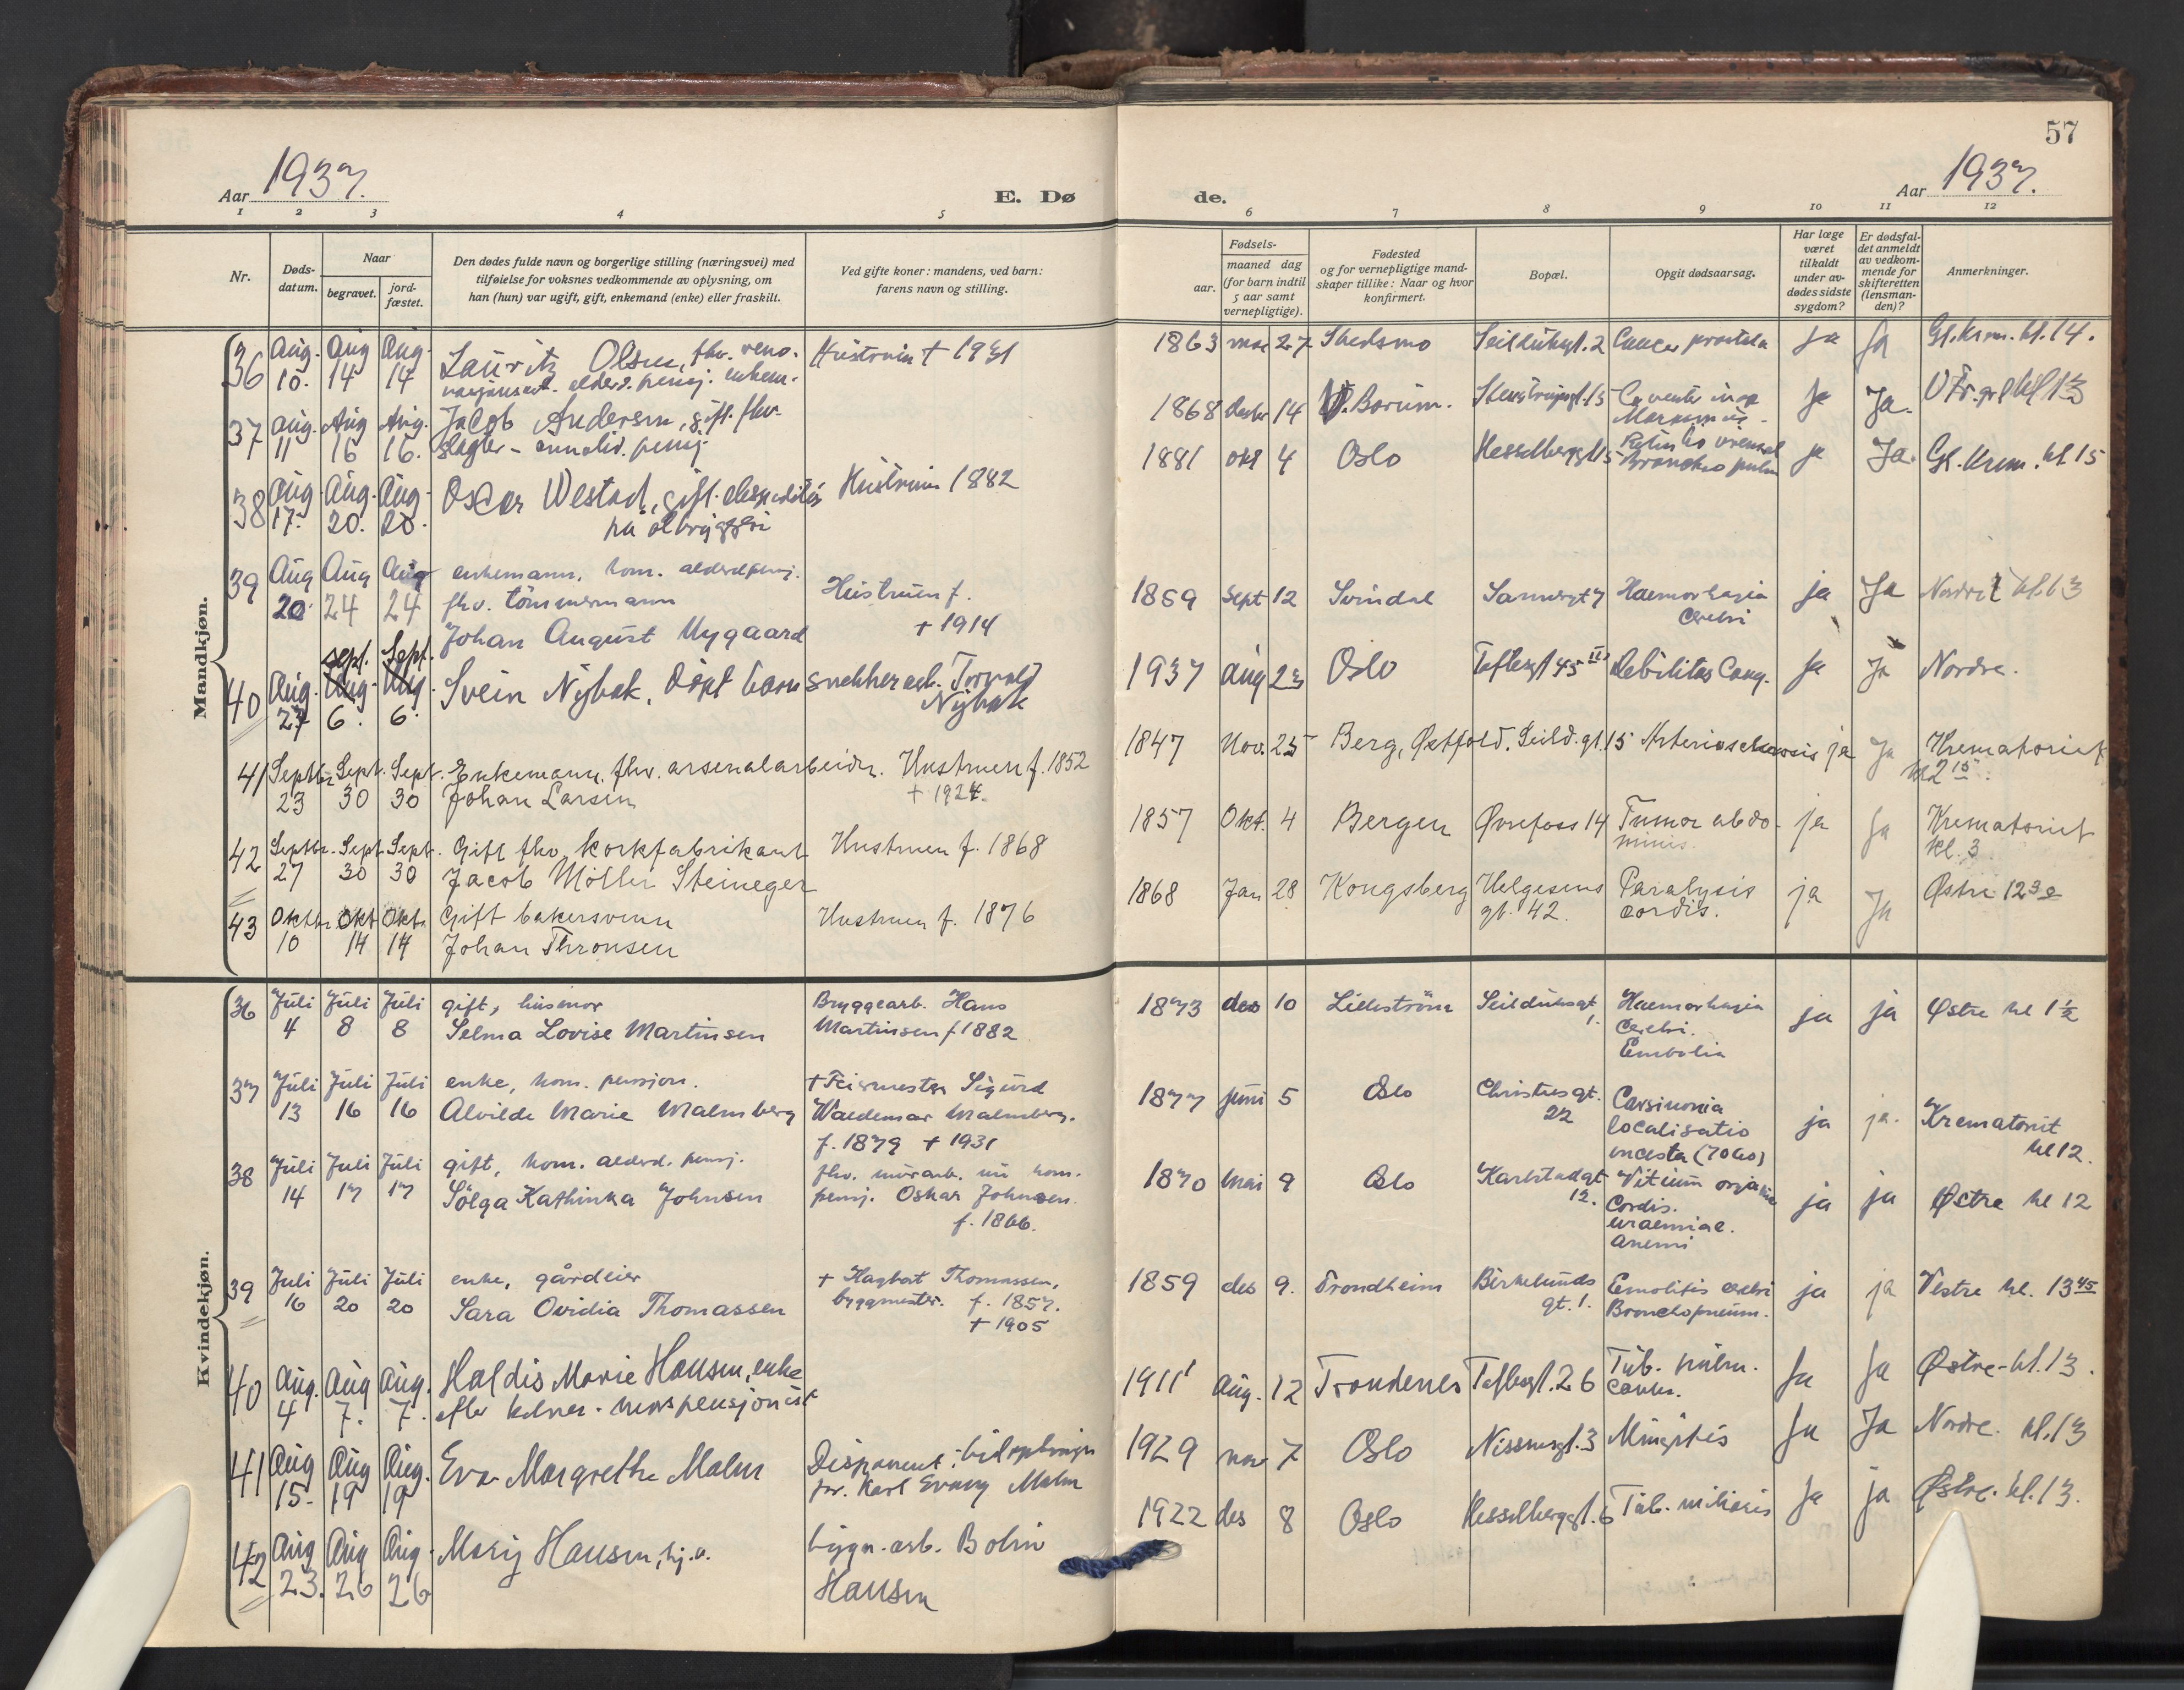 57
Aar 1937.
E. Dø
de.
Aar 1937.
1 2 3 4 5 6 7 8 9 10 11 12
Nr.
Døds-
datum.
Naar
begravet.
jord-
fæstet.
Den dødes fulde navn og borgerlige stilling (næringsvei) med
tilføielse for voksnes vedkommende av oplysning, om
han (hun) var ugift, gift, enkemand (enke) eller fraskilt.
Ved gifte koner: mandens, ved barn:
farens navn og stilling.
Fødsels-
aar.
maaned dag
(for barn indtil
5 aar samt
vernepligtige).
Fødested
og for vernepligtige mand-
skaper tillike: Naar og hvor
konfirmert.
Bopæl.
Opgit dødsaarsag.
Har læge
været
tilkaldt
under av-
dødes sidste
sygdom?
Er dødsfal-
det anmeldt
av vedkom-
mende for
skifteretten
(lensman-
den)?
Anmerkninger.
Mandkjøn.
36 Aug. Aug Aug. Lauritz Olsen, fhv. reno- Hustruen † 1931 1863 27 Skedsmo Seilduksgt. 2 Cancer prostata Ja Ja Gl. krem. kl. 14.
10. 14 14
37 Aug. Aug Aug. Jacob Andersen, gift. fhv. 1868 14 V. Borum. 15 Ja Ja.
11 16 16. slagter - invalid. pensj.
38 Aug Aug. Aug. Oscar Westad, gift. ekspeditør Hustruen 1882 1881 okt 4 Oslo Hesselbergsgt 15 Broncho pulm Ja Ja. Gl. Krem. kl 15
17. 20. 20. på ølbryggeri
39 Aug Aug Aug enkemann, kom. alderd.pensj. Hustruen f. 1869 Sept 12 Svindal Sannergt 7 Haemorhagia ja Ja Nordre kl. 13
20. 24 24 fhv. tömmermann † 1914 cerebri
Johan August Nygaard
Sept. Sept.
40 Aug. Aug. Aug. Svein Nybak, døpt barn snekkerarb. Torvald 1937 aug 23 Oslo Toftesgt 45 III Debilitas Cong. Ja Ja Nordre.
27 6. 6. Nybak
41 Septbr. Sept. Sept. Enkemann, fhv. arsenalarbeider. Hustruen f. 1852 1847 Nov. 25 Berg, Østfold. Seild. gt. 15 Arterioscleorosis ja Ja Krematoriet
23 30 30 Johan Larsen † 1924. kl 2 15.
42 Septbr. Sept. Sept. Gift fhv. korkfabrikant Hustruen f. 1868 1857 Okt. 4 Bergen Øvrefoss 14 Tumor abdo- ja Ja Krematoriet
27 30 30 Jacob Møller Steineger minis. kl. 3
43 Oktbr. Okt Okt. Gift bakersvenn Hustruen f. 1876 1868 Jan 28 Kongsberg Helgesens Paralysis ja Ja Østre 12 30
10 14 14 Johan Thronsen gt. 42. cordis.
Kvindekjøn.
36 Juli Juli Juli gift, husmor Bryggearb. Hans 1873 des 10 Lillestrøm Seilduksgt Haemorhagia ja ja Østre kl 1 1/2
4 8 8 Selma Lovise Martinsen Martinsen f 1882 1. cerebri.
Embolia
37 Juli Juli Juli enke, kom. pensjon. † Feiermester Sigurd 1877 juni 5 Oslo Christiesgt. Carsinomia ja ja. Krematoriet
13 16 16 Alvilde Marie Malmberg Waldemar Malmberg. 22 localisatio kl 12.
f. 1879 † 1931 incesta (7060)
38 Juli Juli Juli gift, kom. alderd. pensj. fhv. murarb. nu kom. 1870 mai 9 Oslo Karlstadgt Vitium ja ja Østre kl 12
14 17 17 Solga Kathinka Johnsen pensj. Oskar Johnsen. 12. Cordis.
f. 1866. uraemiae.
Anemi
39 Juli Juli Juli enke, gårdeier † Hagbart Thomassen, 1859 des 9. Trondheim Birkelunds Emolitis cerebri ja ja Vestre kl. 13 45
16 20 20 Sara Ovidia Thomassen byggmester. f. 1857. gt. 1. Bronchopneum.
† 1905
40 Aug. Aug Aug. Haldis Marie Hansen, enke 1911 Aug. 12 Trondenes Toftesgt. 26 Tub. pulm. Ja Ja Østre - kl. 13.
4 7. 7. efter kelner
41 Aug Aug Aug. Eva Margrethe Malm Disponent 1929 nov 7 Oslo Nissensgt. 3 Mingitis Ja Ja Nordre. kl. 13
15. 19 19 Karl Malm
42 Aug Aug Aug. Mary Hansen, hj.v. bygn. arb. Bolin 1922 des 8 Oslo Hesselbergsgt. 6 Tub. miliaris Ja ja Østre. kl. 13.
23. 26 26 Hansen